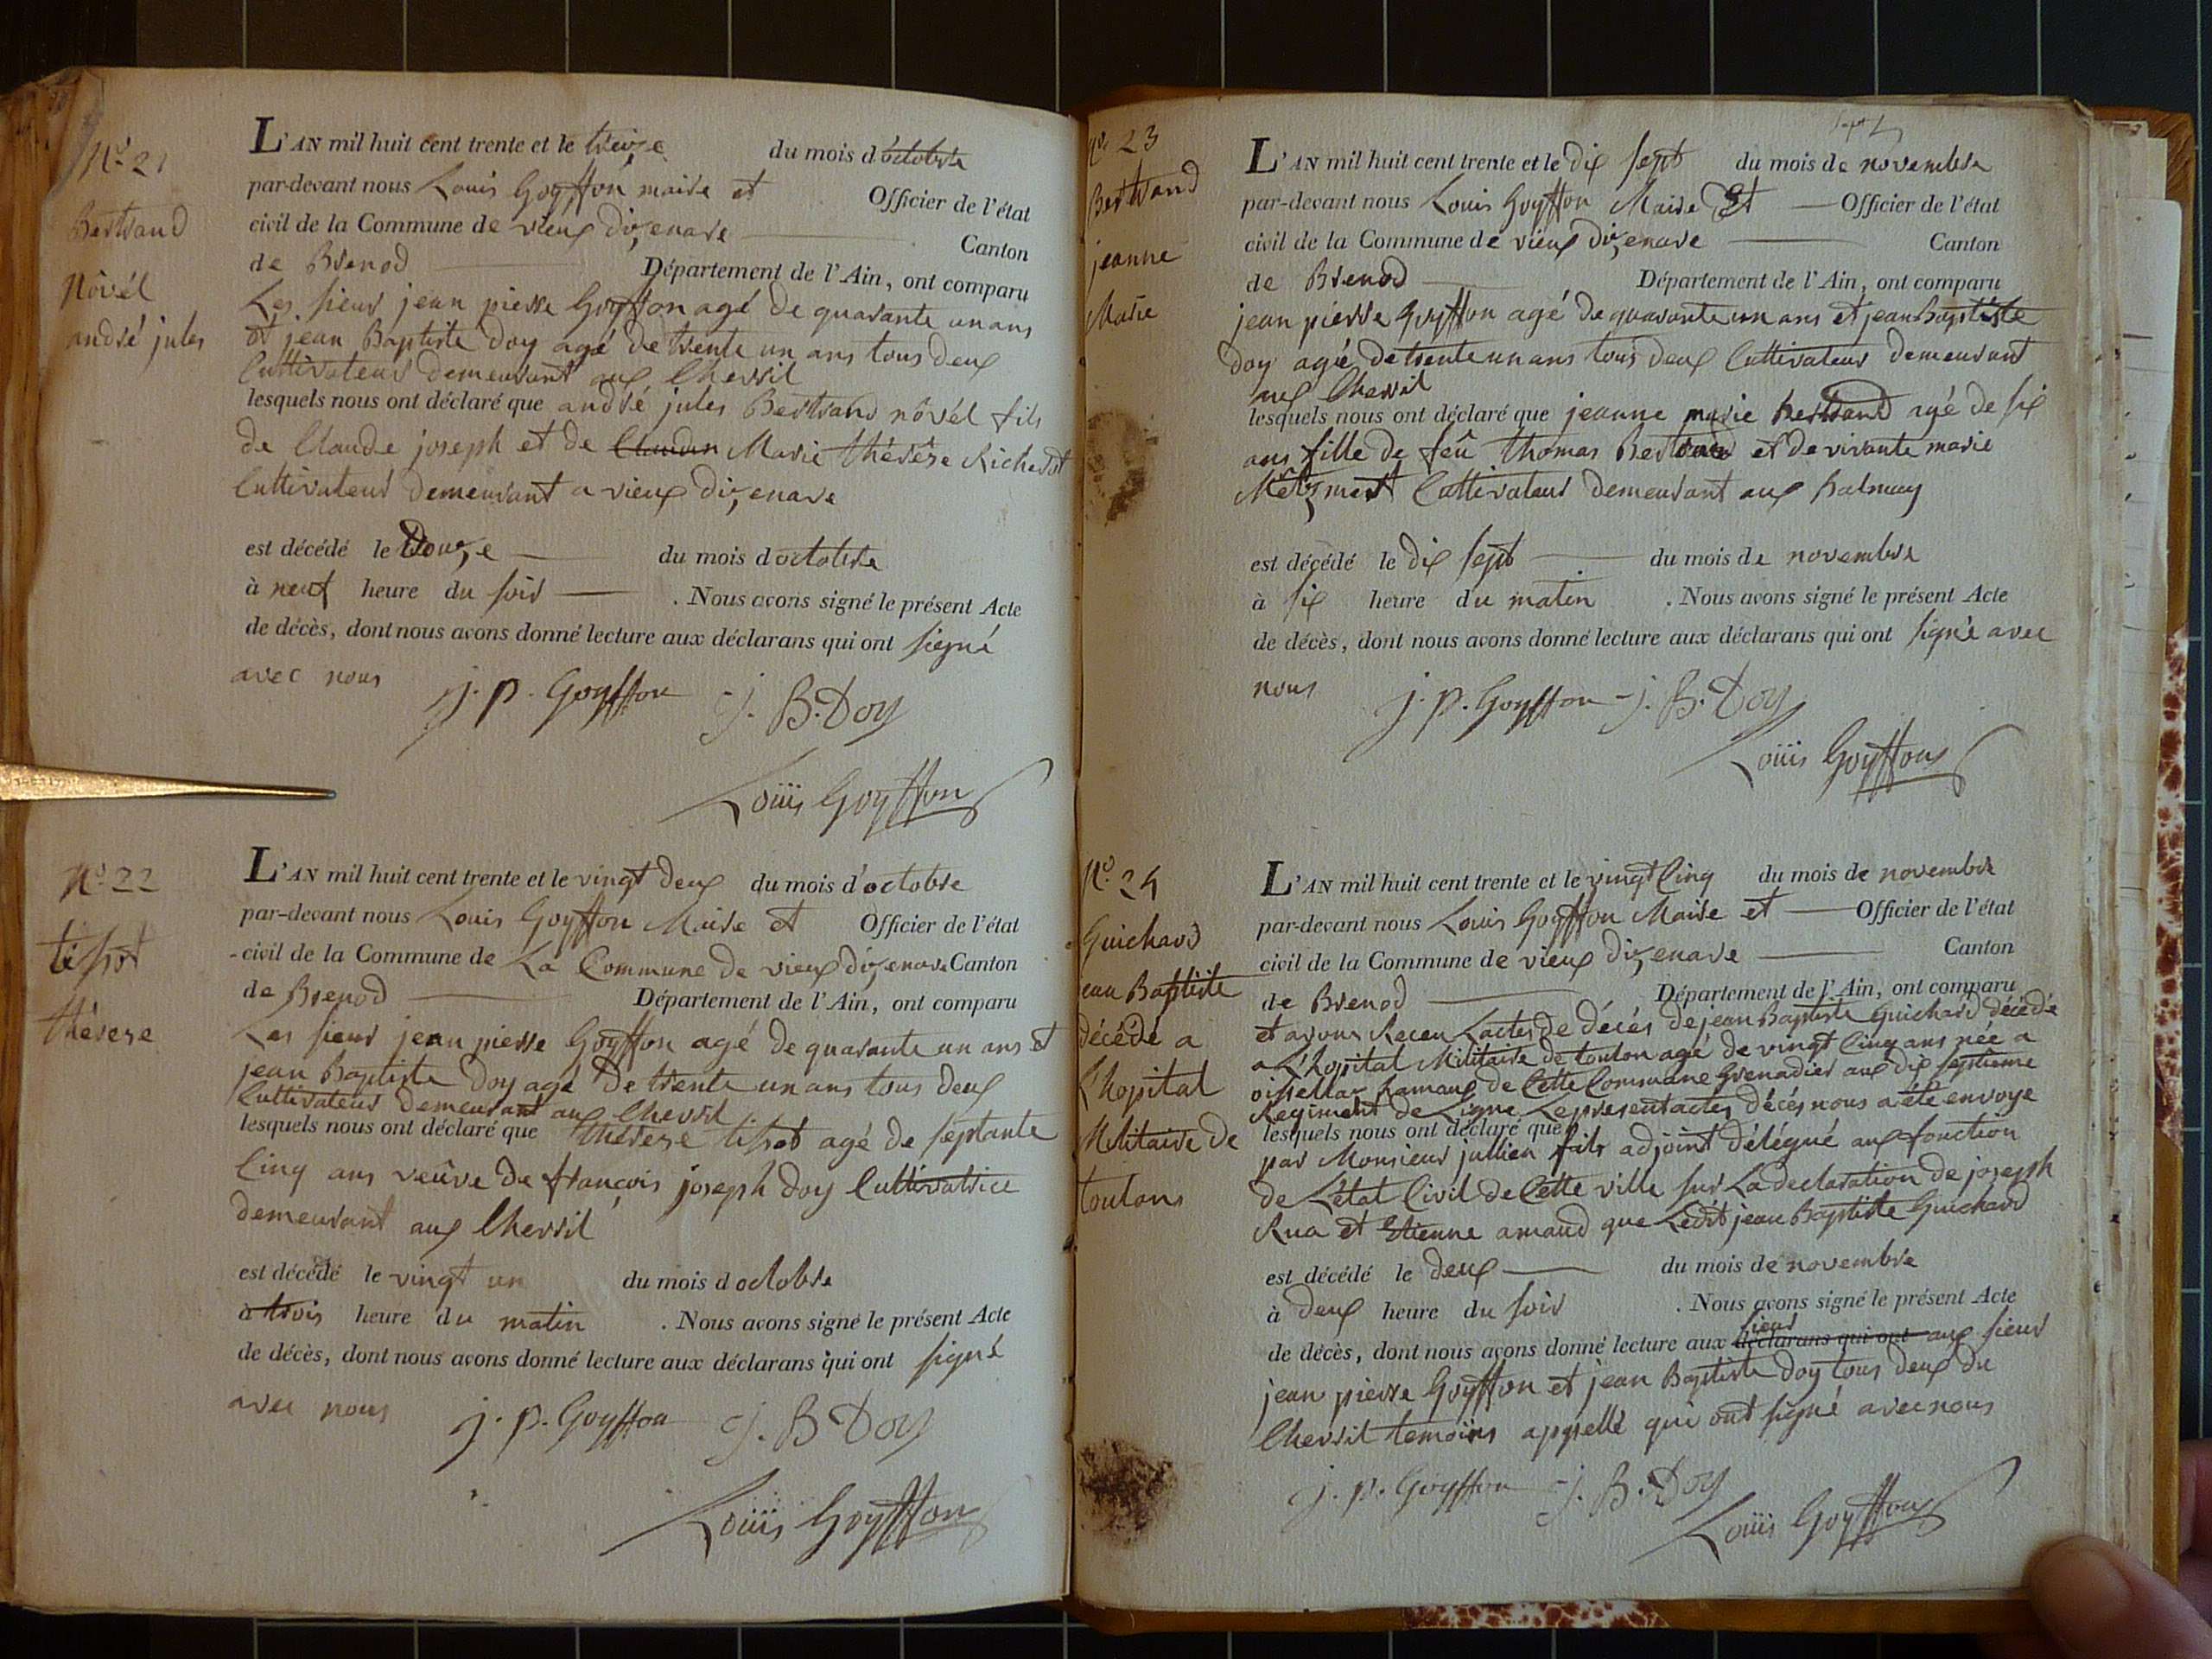 N.o 21
Bertrand
Növél
andré jules
L'AN mil huit cent trente et le treize du mois d'octobre
par-devant nous Louis Goyffon maire et Officier de l'état
civil de la Commune de vieux dizenave Canton
de Brenod Département de l'Ain, ont comparu
Les sieur jean pierre Goyffon agé de quarante un ans
et jean Baptiste Doy agé de trente un ans tous deux
Cultivateur demeurant aux Chevril
lesquels nous ont déclaré que andré jules Bertrand növél fils
de Claude joseph et de Marie thérèse Richerot
Cultivateur demeurant a vieux dizenave
est décédé le Douze du mois d octobre
à neuf heure du soir . Nous avons signé le présent Acte
de décès, dont nous avons donné lecture aux déclarans qui ont signé
avec nous
j. p. Goyffon j. B. Doy
Loüis Goyffon
N.o 22
tissot
thérese
L'AN mil huit cent trente et le vingt deux du mois d'octobre
par-devant nous Louis Goyffon Maire et Officier de l'état
civil de la Commune de La Commune de vieux dizenave Canton
de Brenod Département de l'Ain, ont comparu
Les sieur jean pierre Goyffon agé de quarante un ans et
jean Baptiste Doy agé de trente un ans tous deux
Cultivateur demeurant aux Chevril
lesquels nous ont déclaré que thérese tissot agé de septante
Cinq ans veûve de françois joseph Doy Cultivatrice
demeurant aux Chevril
est décédé le vingt un du mois d octobre
à trois heure du matin . Nous avons signé le présent Acte
de décès, dont nous avons donné lecture aux déclarans qui ont signé
avec nous
j. p. Goyffon j. B Doy
Loüis Goyffon
N.o 23
Bertrand
jeanne
Marie
L'AN mil huit cent trente et le dix sept du mois de novembre
par-devant nous Louis Goyffon Maire Et Officier de l'état
civil de la Commune de vieux dizenave Canton
de Brenod Département de l'Ain, ont comparu
jean pierre Goyffon agé de quarante un ans et jean baptiste
doy agé de trente un ans tous deux Cultivateur demeurant
aux Chevril
lesquels nous ont déclaré que jeanne marie bertrand agé de six
ans fille de feû thomas Bertrand et de vivante marie
Cultivateur demeurant aux balmay
est décédé le dix sept du mois de novembre
à six heure du matin . Nous avons signé le présent Acte
de décès, dont nous avons donné lecture aux déclarans qui ont signé avec
nous
j. p. Goyffon j. B. Doy
Loüis Goyffon
N.o 24
Guichard
jean Baptiste
décédé a
L'hopital
Militaire de
toulons
L'AN mil huit cent trente et le vingt Cinq du mois de novembre
par-devant nous Louis Goyffon Maire et Officier de l'état
civil de la Commune de vieux dizenave Canton
de Brenod Département de l'Ain, ont comparu
et avons Receu Lactes de décés de jean Baptiste Guichard décédé
a L'hopital Militaire de toulon agé de vingt Cinq ans née a
oissellar hamaux de Cette Commune Grenadier aux dix septieme
Regiment de Ligne Le present actes décés nous a été envoye
lesquels nous ont déclaré que
par Monsieur jullien fils adjoint délégué aux fonction
de L'état Civil de Cette ville sur La declaration de joseph
Rua et Etienne amaud que Ledit jean Baptiste Guichard
est décédé le deux du mois de novembre
à deux heure du soir . Nous avons signé le présent Acte
sieur
de décès, dont nous avons donné lecture aux déclarans qui ont aux sieur
jean pierre Goyffon et jean Baptiste Doy tous deux du
Chevril temoins appellé qui ont signé avec nous
j. p. Goyffon j. B. Doy
Loüis Goyffon